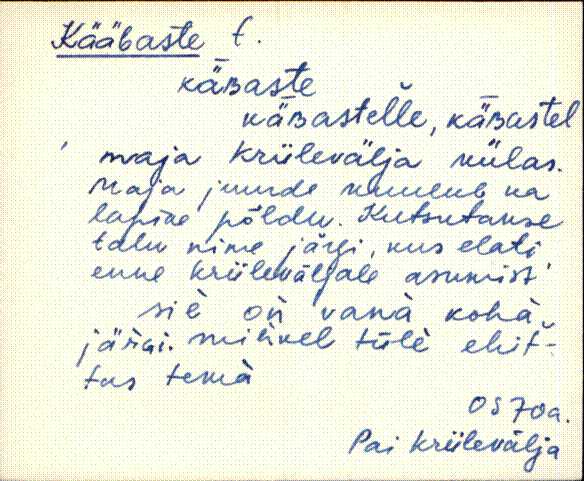 Kääbaste t.
kǟʙaste
kǟʙastel̆le, kǟʙastel
maja Kriilevälja külas.
Maja juurde kuulub ka
lapike põldu. Kutsutakse
talu nime järgi, kus elati
enne Kriileväljale asumist
siè on vanà kohà
järɢi. mihkel tüĺè ehit̆-
tas temà
OS 70a.
Pai Kriilevälja